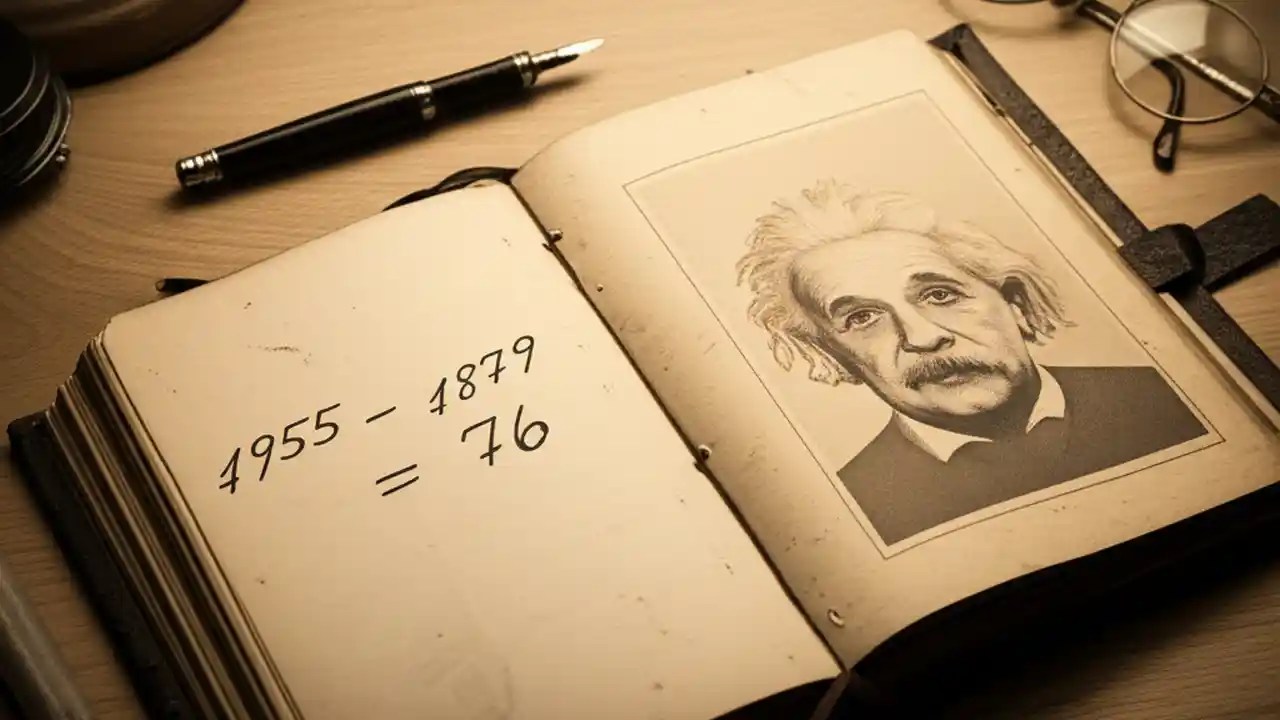 1955 – 1879
= 76